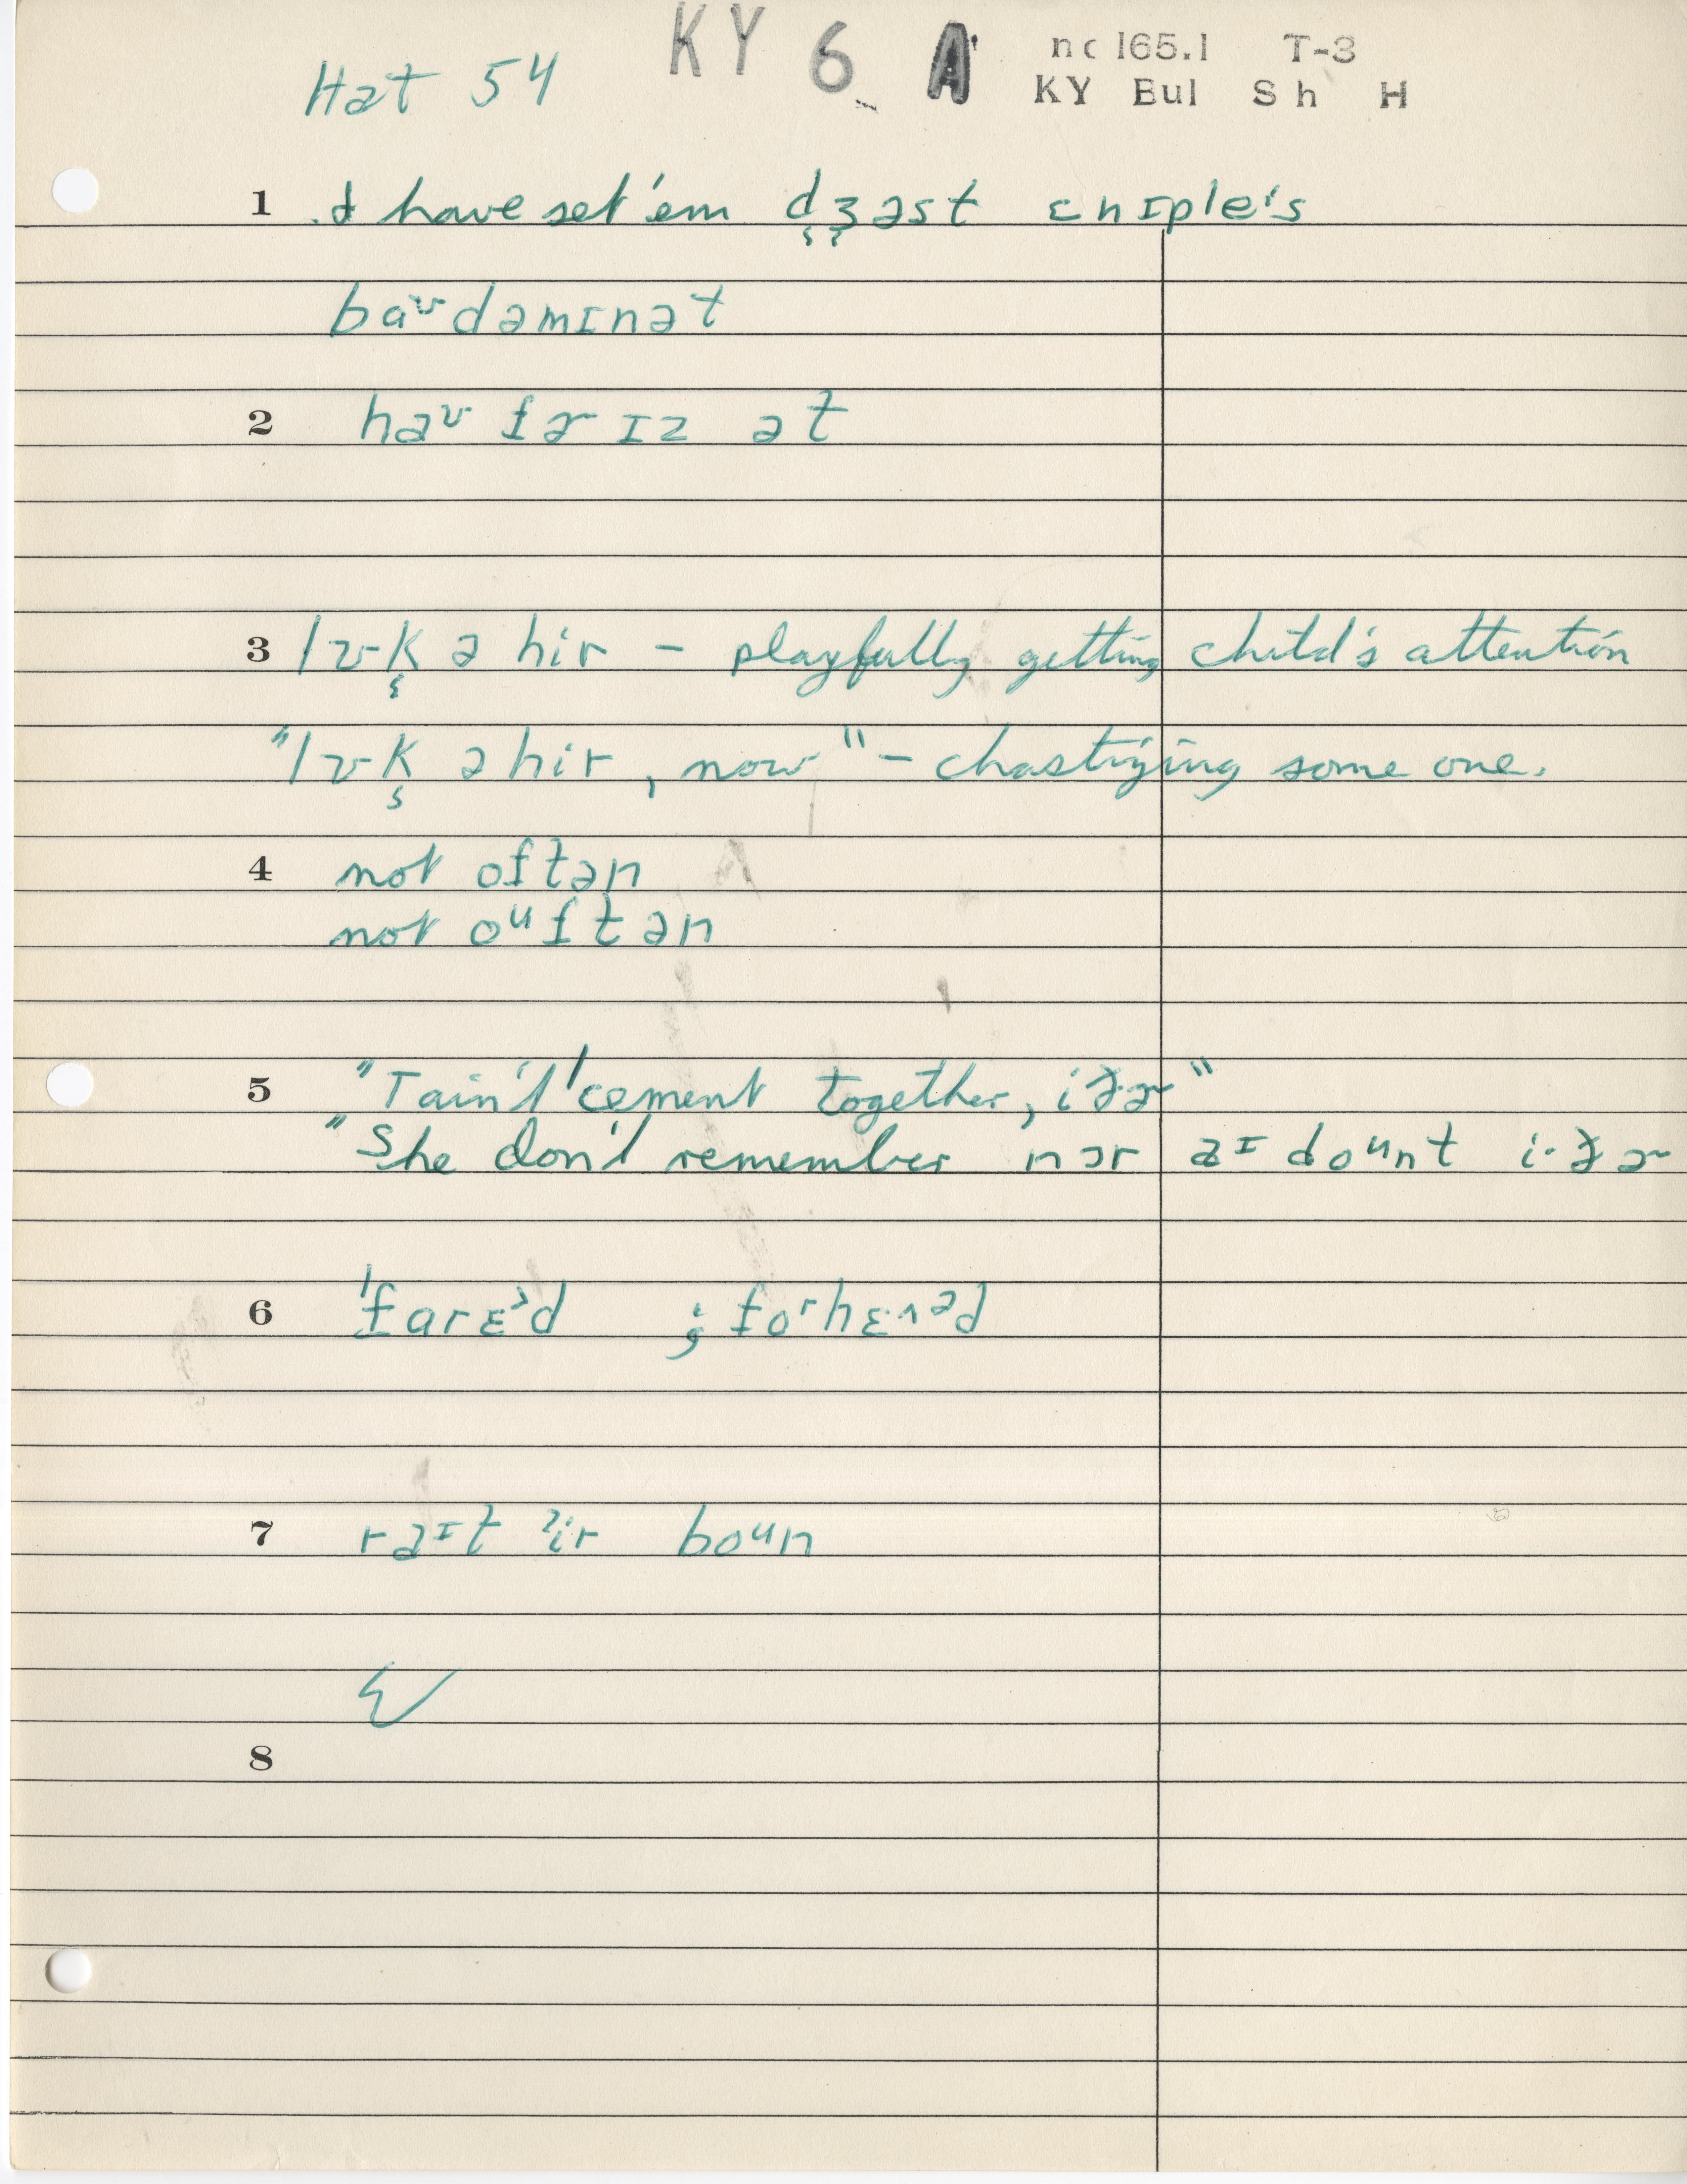 Hat 54 KY 6 A nc 165.1 T-3
KY Bul Sh H
1 I have set 'em dʒ̬əst ɛnɪpleˈs
baʊdəmɪnət
2 haʊ fɚ ɪz ət
3 lʊk̬ ə hir – playfully getting child's attention
"lʊk̬ ə hir, now" – chastizing some one.
4 not oftən
not oᵘftən
5 "Tain't 'cement together, iðɚ"
"She don't remember nɔr aɪ doᵘnt i·ðɚ
6 'farɛᵊd ; forhɛᵊd
7 raɪt ir boun
8